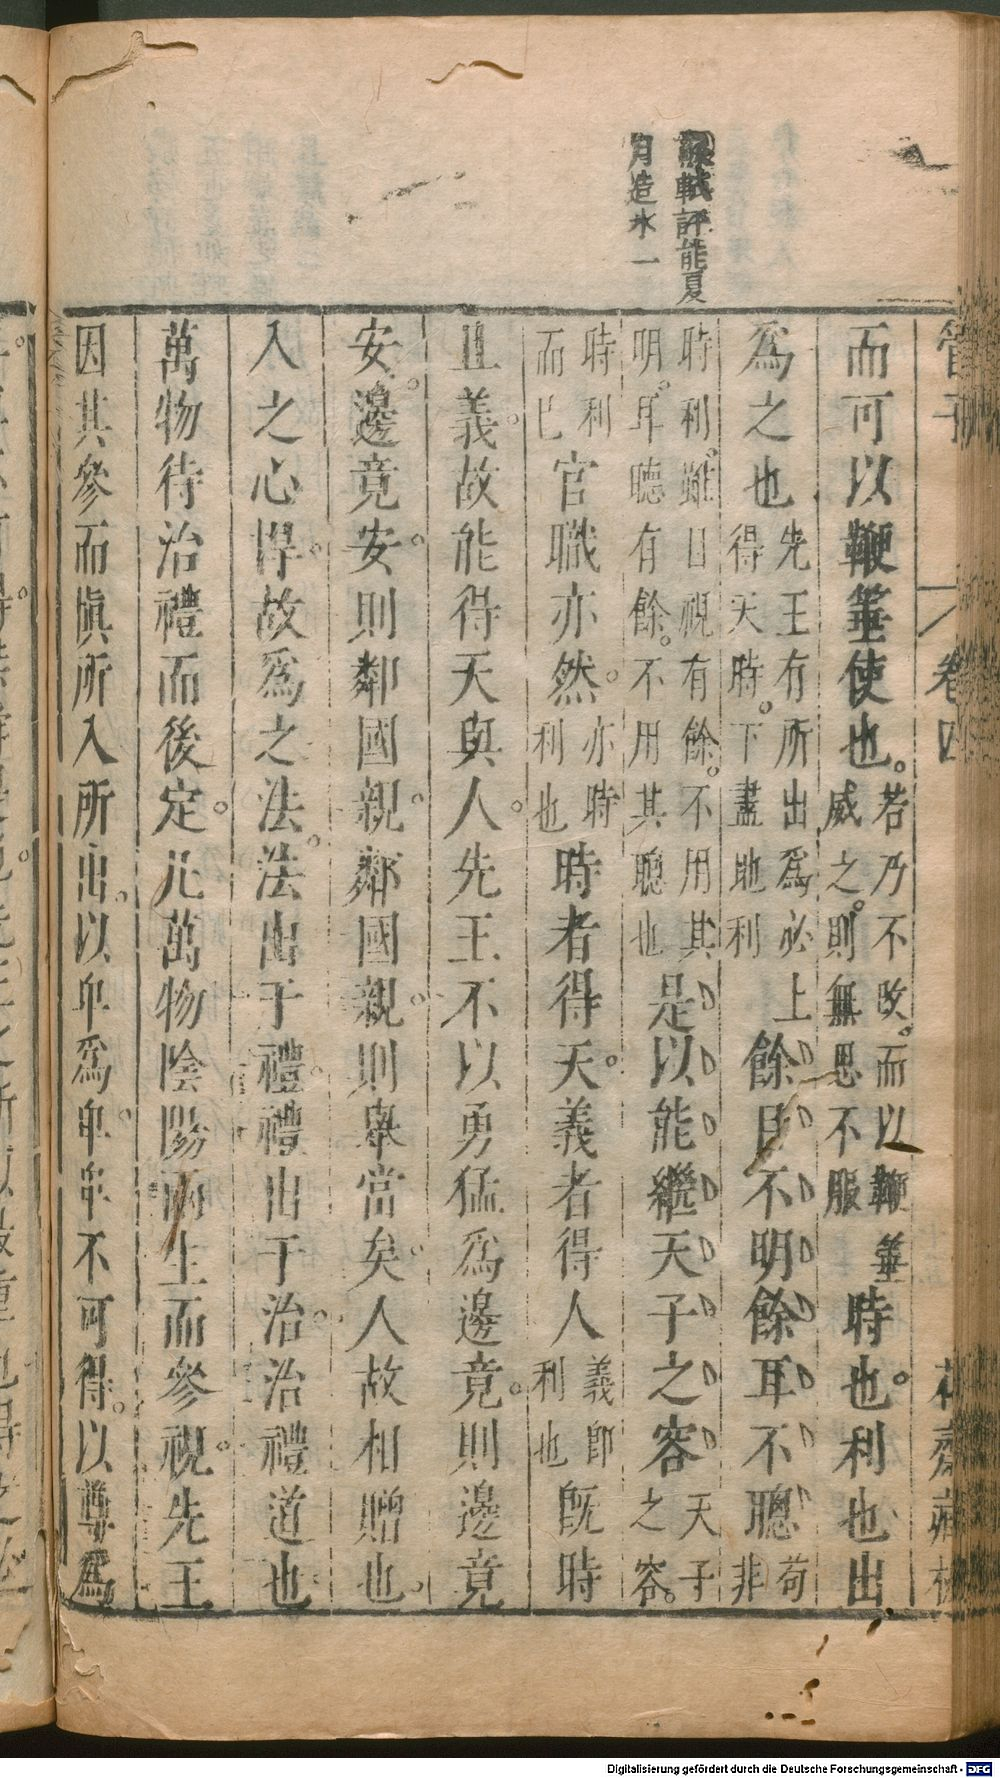 管子 卷四 花齋藏板
蘇軾評能夏
月造氷一
而可以鞭箠使也。若乃不改。而以鞭箠威之。則無思不服時也。利也出
爲之也先王有所出爲必上得天時。下盡地利餘目不明餘耳不聰苟非
時利。雖目視有餘。不用其明。耳聽有餘。不用其聰也是以能繼天子之容天子之容。
時利而已官職亦然。亦時利也時者得天。義者得人義即利也既時
且義。故能得天與人。先王不以勇猛爲邊竟。則邊竟
安。邊竟安。則鄰國親。鄰國親。則舉當矣。人故相贈也。
入之心悍。故爲之法。法出于禮。禮出于治。治禮道也
萬物待治禮而後定。凡萬物陰陽兩生而參視。先王
因其參而慎所入所出。以卑爲卑。卑不可得。以尊爲
Digitalisierung gefördert durch die Deutsche Forschungsgemeinschaft - DFG